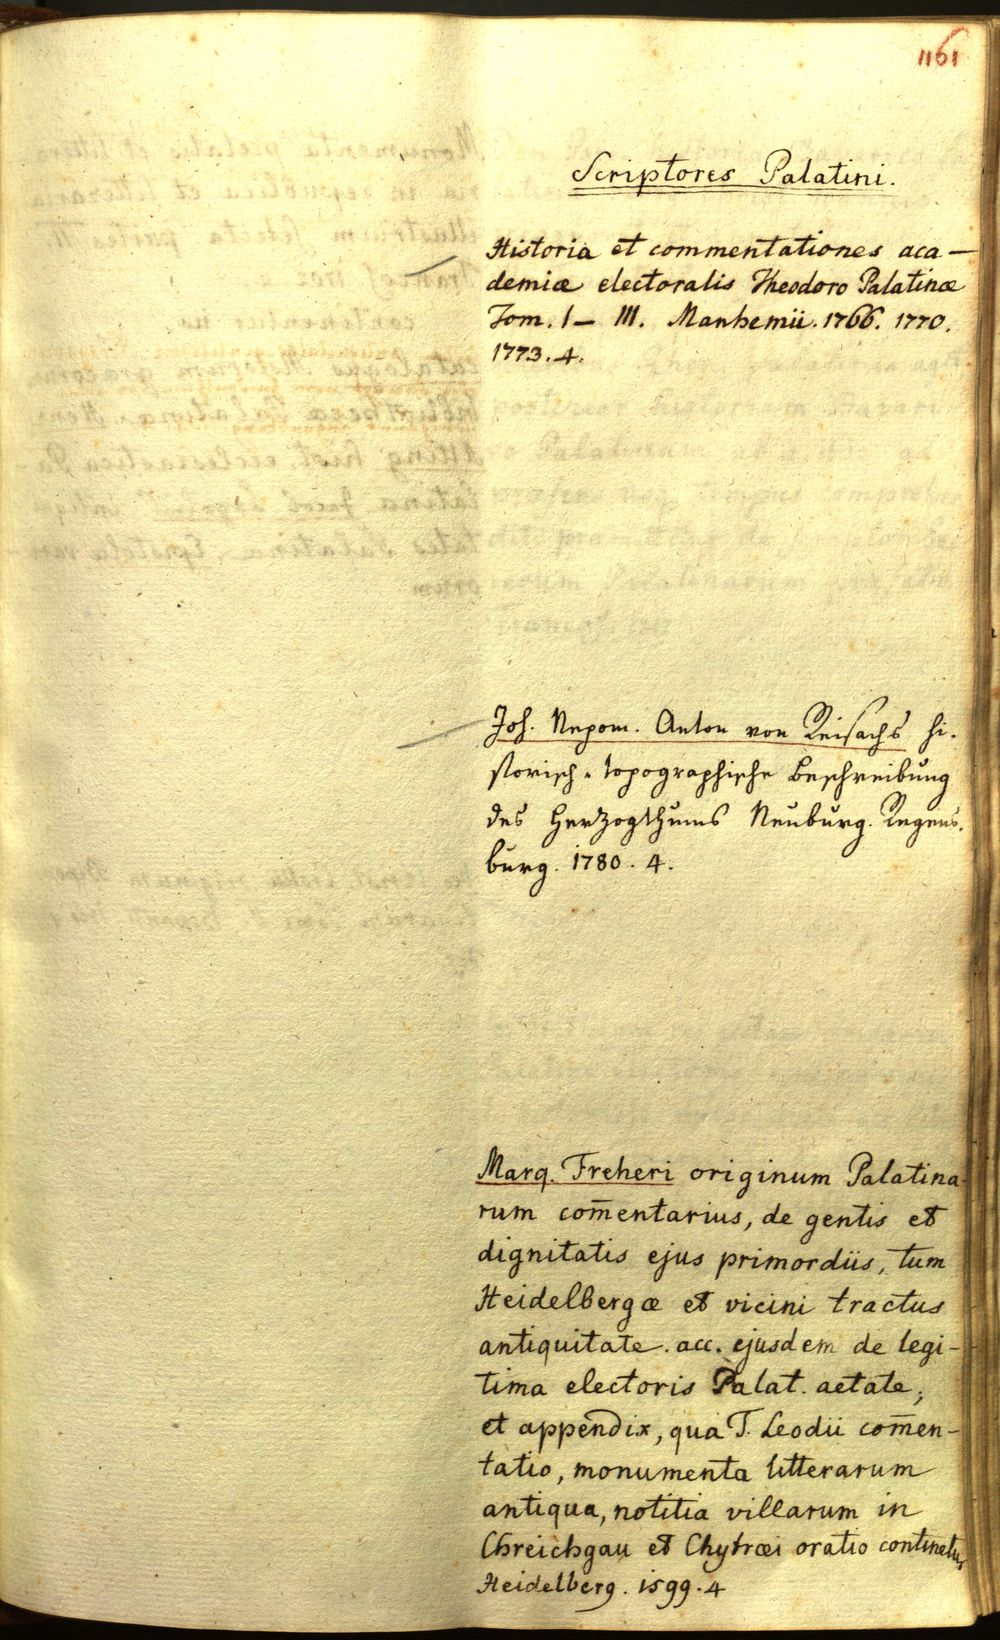 1161
Scriptores Palatini.
Historia et commentationes aca-
demiæ electoralis Theodoro Palatinæ
Tom. I – III. Manhemii. 1766. 1770.
1773. 4.
Joh. Nepom. Anton von Reisachs hi-
storisch-topographische Beschreibung
des Herzogthums Neuburg. Regens-
burg. 1780. 4.
Marq. Freheri originum Palatina-
rum com̄entarius, de gentis et
dignitatis ejus primordiis, tum
Heidelbergæ et vicini tractus
antiquitate. acc. ejusdem de legi-
tima electoris Palat. aetate,
et appendix, qua T. Leodii com̄en-
tatio, monumenta litterarum
antiqua, notitia villarum in
Chreichgau et Chytræi oratio continetur
Heidelberg. 1599. 4